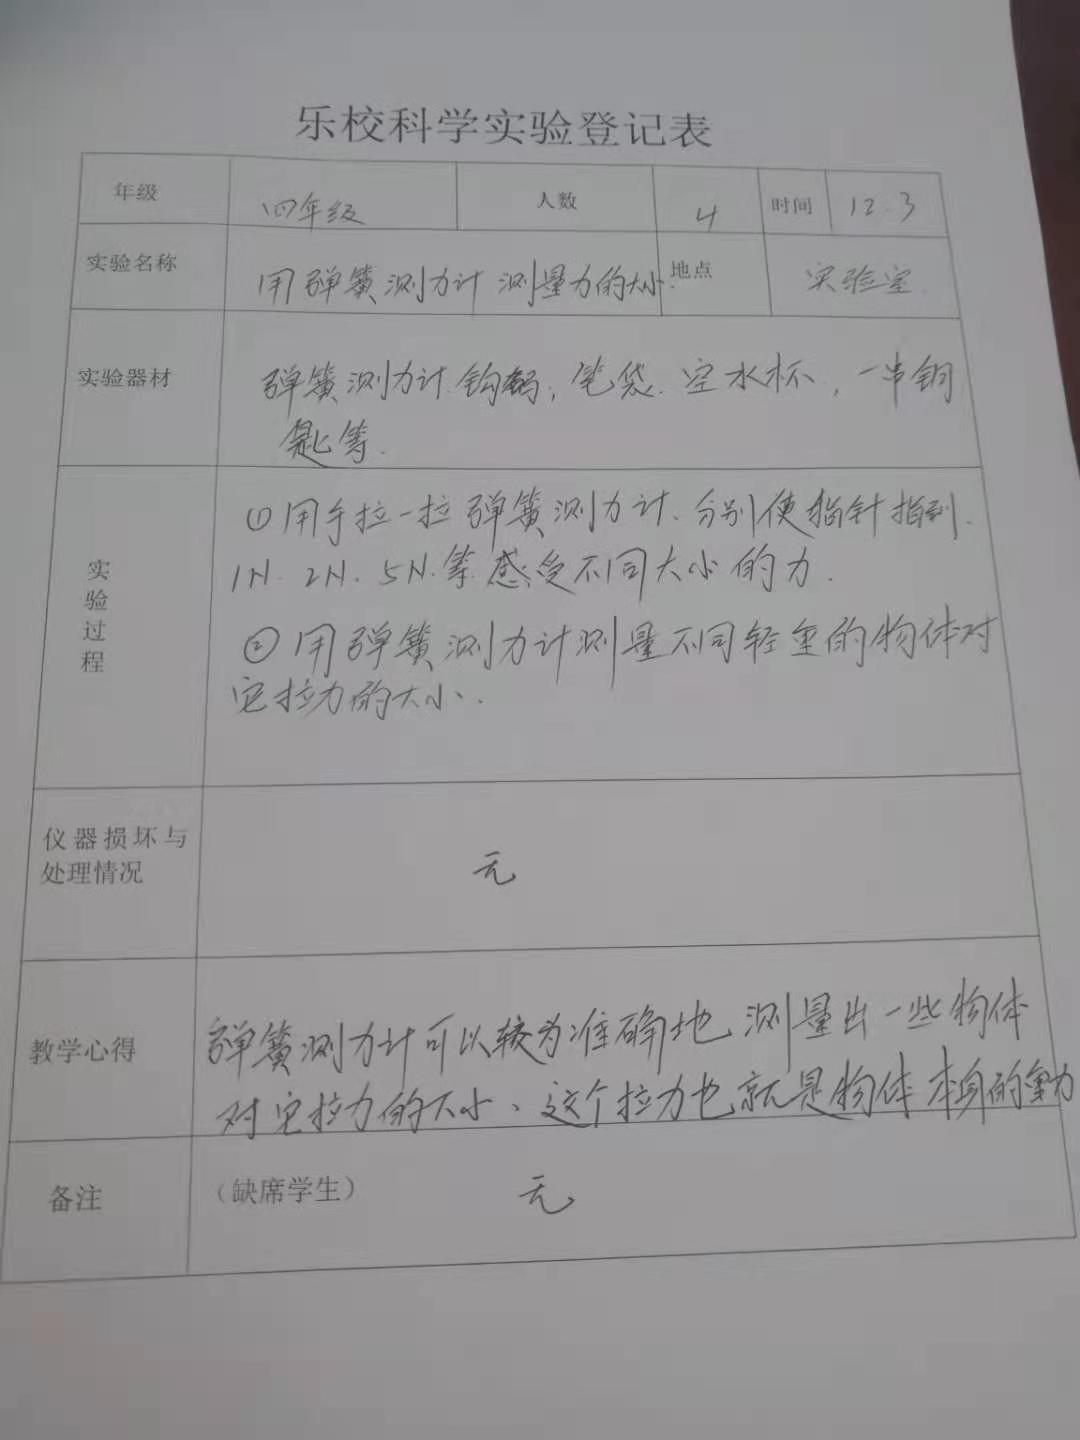 乐校科学实验登记表
年级 四年级 人数 4 时间 12.3
实验名称 用弹簧测力计测量力的大小. 地点 实验室.
实验器材 弹簧测力计.钩码,笔袋.空水杯,一串钥
匙等.
实验过程
①用手拉一拉弹簧测力计、分别使指针指到.
1N.2N.5N.等.感受不同大小的力.
②用弹簧测力计测量不同轻重的物体对
它拉力的大小.
仪器损坏与
处理情况
无
教学心得
弹簧测力计可以较为准确地测量出一些物体
对它拉力的大小、这个拉力也就是物体本身的重力
备注 (缺席学生) 无